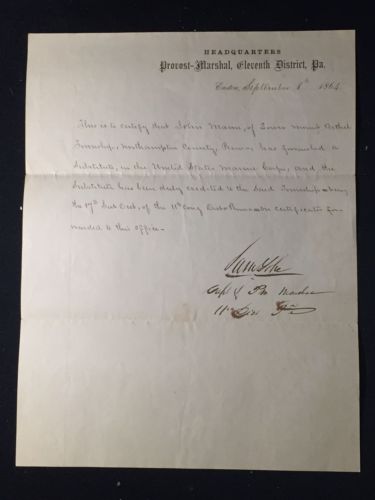 HEADQUARTERS
Provost-Marshal, Eleventh District, Pa.
Easton, September 8th 1864.
This is to certify that John Mann, of Lower Mount Bethel
Township, Northampton County, Penna, has furnished a
Substitute, in the United States Marine Corps, and the
Substitute has been duly credited to the said Township being
the 17th Sub Dist, of the 11th Cong Dist Penna on certificate for-
warded to this office.
Capt & Pro Marshal
11th Dist Pa